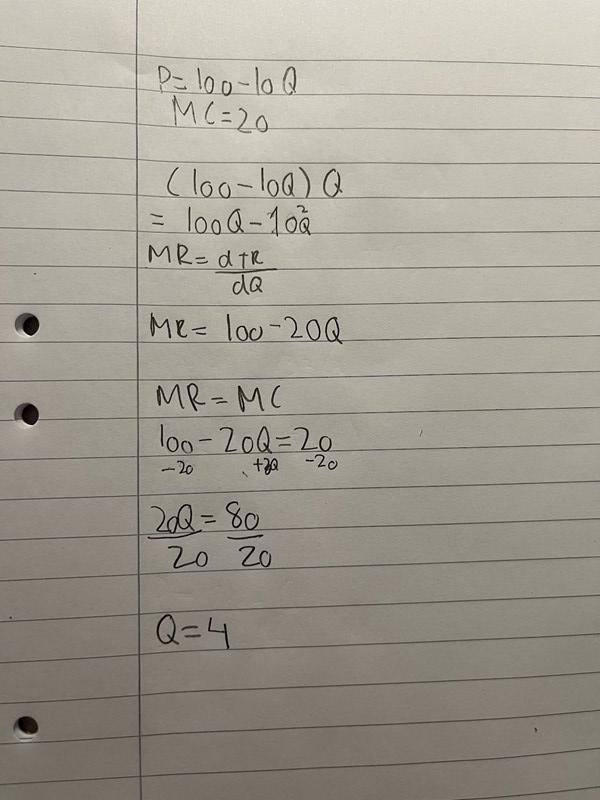 P=100-10Q
MC=20
(100-10Q) Q
= 100Q-10Q²
MR= dTR/dQ
MR= 100-20Q
MR=MC
100-20Q=20
-20 +20Q -20
20Q/20 = 80/20
Q=4